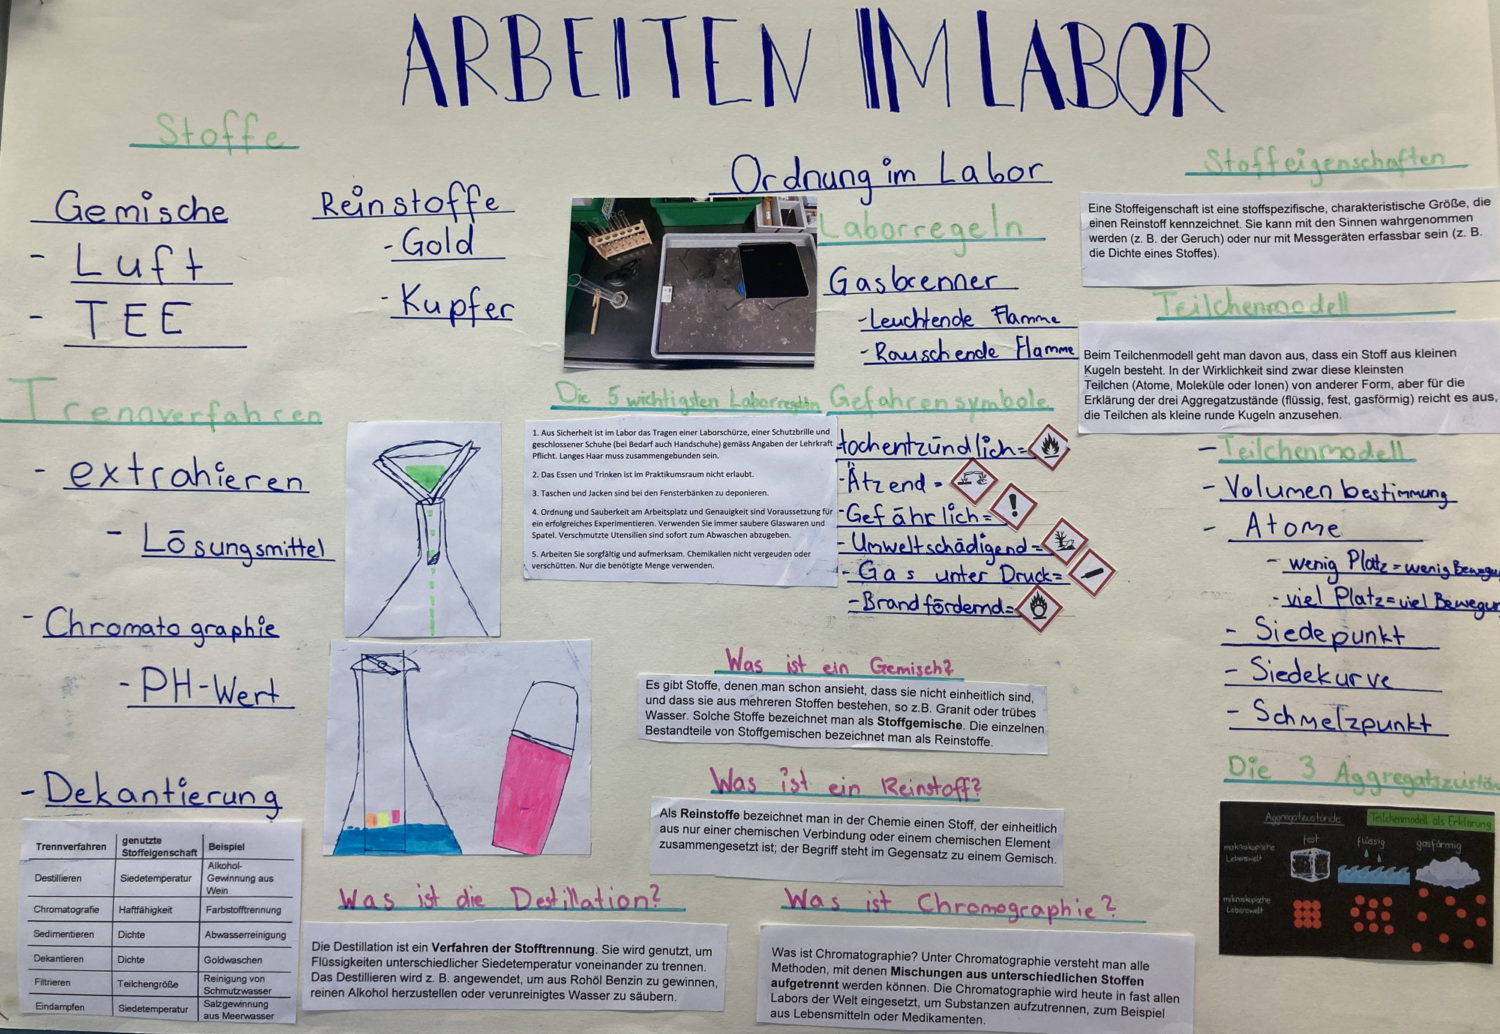 ARBEITEN IM LABOR
Stoffe
Gemische
- Luft
- TEE
Reinstoffe
- Gold
- Kupfer
Trennverfahren
- extrahieren
- Lösungsmittel
- Chromatographie
- PH-Wert
- Dekantierung
Trennverfahren genutzte Stoffeigenschaft Beispiel
Destillieren Siedetemperatur Alkohol-Gewinnung aus Wein
Chromatografie Haftfähigkeit Farbstofftrennung
Sedimentieren Dichte Abwasserreinigung
Dekantieren Dichte Goldwaschen
Filtrieren Teilchengröße Reinigung von Schmutzwasser
Eindampfen Siedetemperatur Salzgewinnung aus Meerwasser
Ordnung im Labor
Laborregeln
Gasbrenner
- Leuchtende Flamme
- Rauschende Flamme
Die 5 wichtigsten Laborregeln
1. Aus Sicherheit ist im Labor das Tragen einer Laborschürze, einer Schutzbrille und
geschlossener Schuhe (bei Bedarf auch Handschuhe) gemäss Angaben der Lehrkraft
Pflicht. Langes Haar muss zusammengebunden sein.
2. Das Essen und Trinken ist im Praktikumsraum nicht erlaubt.
3. Taschen und Jacken sind bei den Fensterbänken zu deponieren.
4. Ordnung und Sauberkeit am Arbeitsplatz und Genauigkeit sind Voraussetzung für
ein erfolgreiches Experimentieren. Verwenden Sie immer saubere Glaswaren und
Spatel. Verschmutzte Utensilien sind sofort zum Abwaschen abzugeben.
5. Arbeiten Sie sorgfältig und aufmerksam. Chemikalien nicht vergeuden oder
verschütten. Nur die benötigte Menge verwenden.
Gefahrensymbole
Hochentzündlich=
- Ätzend =
- Gefährlich=
- Umweltschädigend=
- Gas unter Druck=
- Brandfördernd=
Was ist ein Gemisch?
Es gibt Stoffe, denen man schon ansieht, dass sie nicht einheitlich sind,
und dass sie aus mehreren Stoffen bestehen, so z.B. Granit oder trübes
Wasser. Solche Stoffe bezeichnet man als Stoffgemische. Die einzelnen
Bestandteile von Stoffgemischen bezeichnet man als Reinstoffe.
Was ist ein Reinstoff?
Als Reinstoffe bezeichnet man in der Chemie einen Stoff, der einheitlich
aus nur einer chemischen Verbindung oder einem chemischen Element
zusammengesetzt ist; der Begriff steht im Gegensatz zu einem Gemisch.
Was ist die Destillation?
Die Destillation ist ein Verfahren der Stofftrennung. Sie wird genutzt, um
Flüssigkeiten unterschiedlicher Siedetemperatur voneinander zu trennen.
Das Destillieren wird z. B. angewendet, um aus Rohöl Benzin zu gewinnen,
reinen Alkohol herzustellen oder verunreinigtes Wasser zu säubern.
Was ist Chromographie?
Was ist Chromatographie? Unter Chromatographie versteht man alle
Methoden, mit denen Mischungen aus unterschiedlichen Stoffen
aufgetrennt werden können. Die Chromatographie wird heute in fast allen
Labors der Welt eingesetzt, um Substanzen aufzutrennen, zum Beispiel
aus Lebensmitteln oder Medikamenten.
Stoffeigenschaften
Eine Stoffeigenschaft ist eine stoffspezifische, charakteristische Größe, die
einen Reinstoff kennzeichnet. Sie kann mit den Sinnen wahrgenommen
werden (z. B. der Geruch) oder nur mit Messgeräten erfassbar sein (z. B.
die Dichte eines Stoffes).
Teilchenmodell
Beim Teilchenmodell geht man davon aus, dass ein Stoff aus kleinen
Kugeln besteht. In der Wirklichkeit sind zwar diese kleinsten
Teilchen (Atome, Moleküle oder Ionen) von anderer Form, aber für die
Erklärung der drei Aggregatzustände (flüssig, fest, gasförmig) reicht es aus,
die Teilchen als kleine runde Kugeln anzusehen.
- Teilchenmodell
- Volumenbestimmung
- Atome
- wenig Platz = wenig Bewegu
- viel Platz = viel Bewegu
- Siedepunkt
- Siedekurve
- Schmelzpunkt
Die 3 Aggregatszustän
Aggregatzustände Teilchenmodell als Erklärung
fest flüssig gasförmig
makroskopische
Lebenswelt
mikroskopische
Lebenswelt